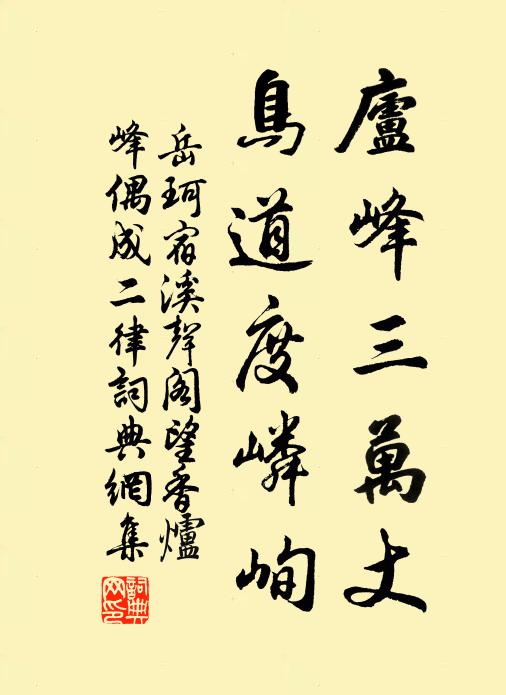 廬峰三萬丈
鳥道度嶙峋
岳珂宿溪聲閣望香爐
峰偶成二律詞典網集
詞典网印